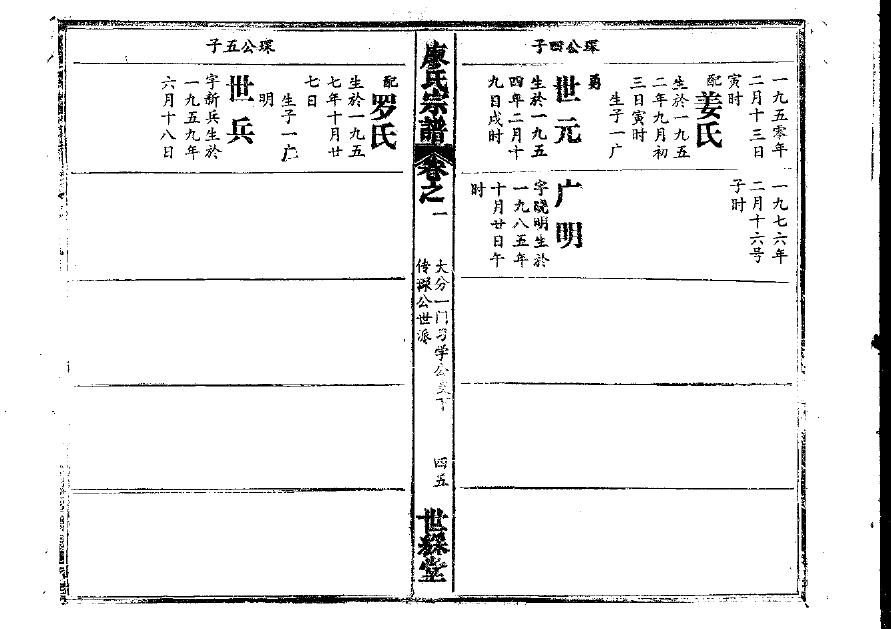 琛公四子
一九五零年
二月十三日
寅时
配
姜氏
生於一九五
二年九月初
三日寅时
生子一广
勇
世元
生於一九五
四年二月十
九日戌时
一九七六年
二月十六号
子时
广明
字晓明生於
一九八五年
十月廿日午
时
廖氏宗譜
卷之一
大分一门习学公支下
传琛公世派
四五
世綵堂
琛公五子
配
罗氏
生於一九五
七年十月廿
七日
生子一广
明
世兵
字新兵生於
一九五九年
六月十八日